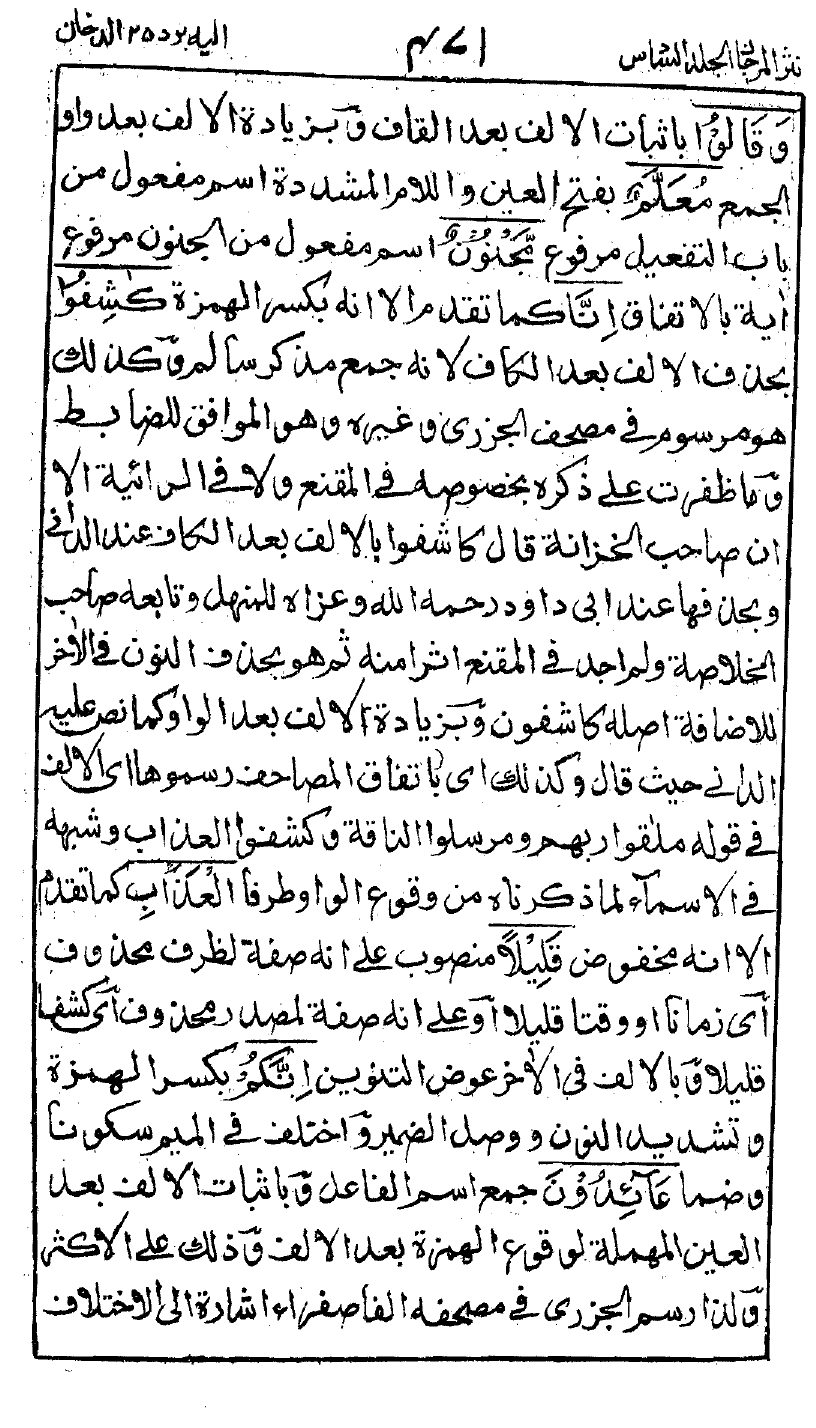 نثر المرجان الجلد السادس ٤٧١ اليه يرد ٢٥ الدخان
وَقَالُوْا باثبات الالف بعد القاف وبزيادة الالف بعد واو
الجمع مُعَلَّمٌ بفتح العين واللام المشددة اسم مفعول من
باب التفعيل مرفوع مَّجْنُوْنٌ اسم مفعول من الجنون مرفوع
اٰية بالاتفاق اِنَّا كما تقدم الا انه بكسر الهمزة كٰشِفُوا
بحذف الالف بعد الكاف لانه جمع مذكر سالم وكذلك
هو مرسوم في مصحف الجزرى وغيره وهو الموافق للضابط
وما ظفرت على ذكره بخصوصه في المقنع ولا في الرائية الا
ان صاحب الخزانة قال كاشفوا بالالف بعد الكاف عند الداني
وبحذفها عند ابى داود رحمه الله وعزاه للمنهل وتابعه صاحب
الخلاصة ولم اجد في المقنع اثرا منه ثم هو بحذف النون في الاٰخر
للاضافة اصله كاشفون وبزيادة الالف بعد الواو كما نص عليه
الداني حيث قال وكذلك اى باتفاق المصاحف رسموها اى الالف
في قوله ملٰقوا ربهم ومرسلوا الناقة وكشفوا العذاب وشبهه
في الاسمآء لما ذكرناه من وقوع الواو طرفا الْعَذَابِ كما تقدم
الا انه مخفوض قَلِيْلًا منصوب على انه صفة لظرف محذوف
اى زمانا او وقتا قليلا او على انه صفة لمصدر محذوف اى كشفا
قليلا وبالالف في الاٰخر عوض التنوين اِنَّكُمْ بكسر الهمزة
وتشديد النون ووصل الضمير واختلف في الميم سكونا
وضما عَآئِدُوْنَ جمع اسم الفاعل وباثبات الالف بعد
العين المهملة لوقوع الهمزة بعد الالف وذلك على الاكثر
ولذا رسم الجزرى في مصحفه الفا صفراء اشارة الى الاختلاف